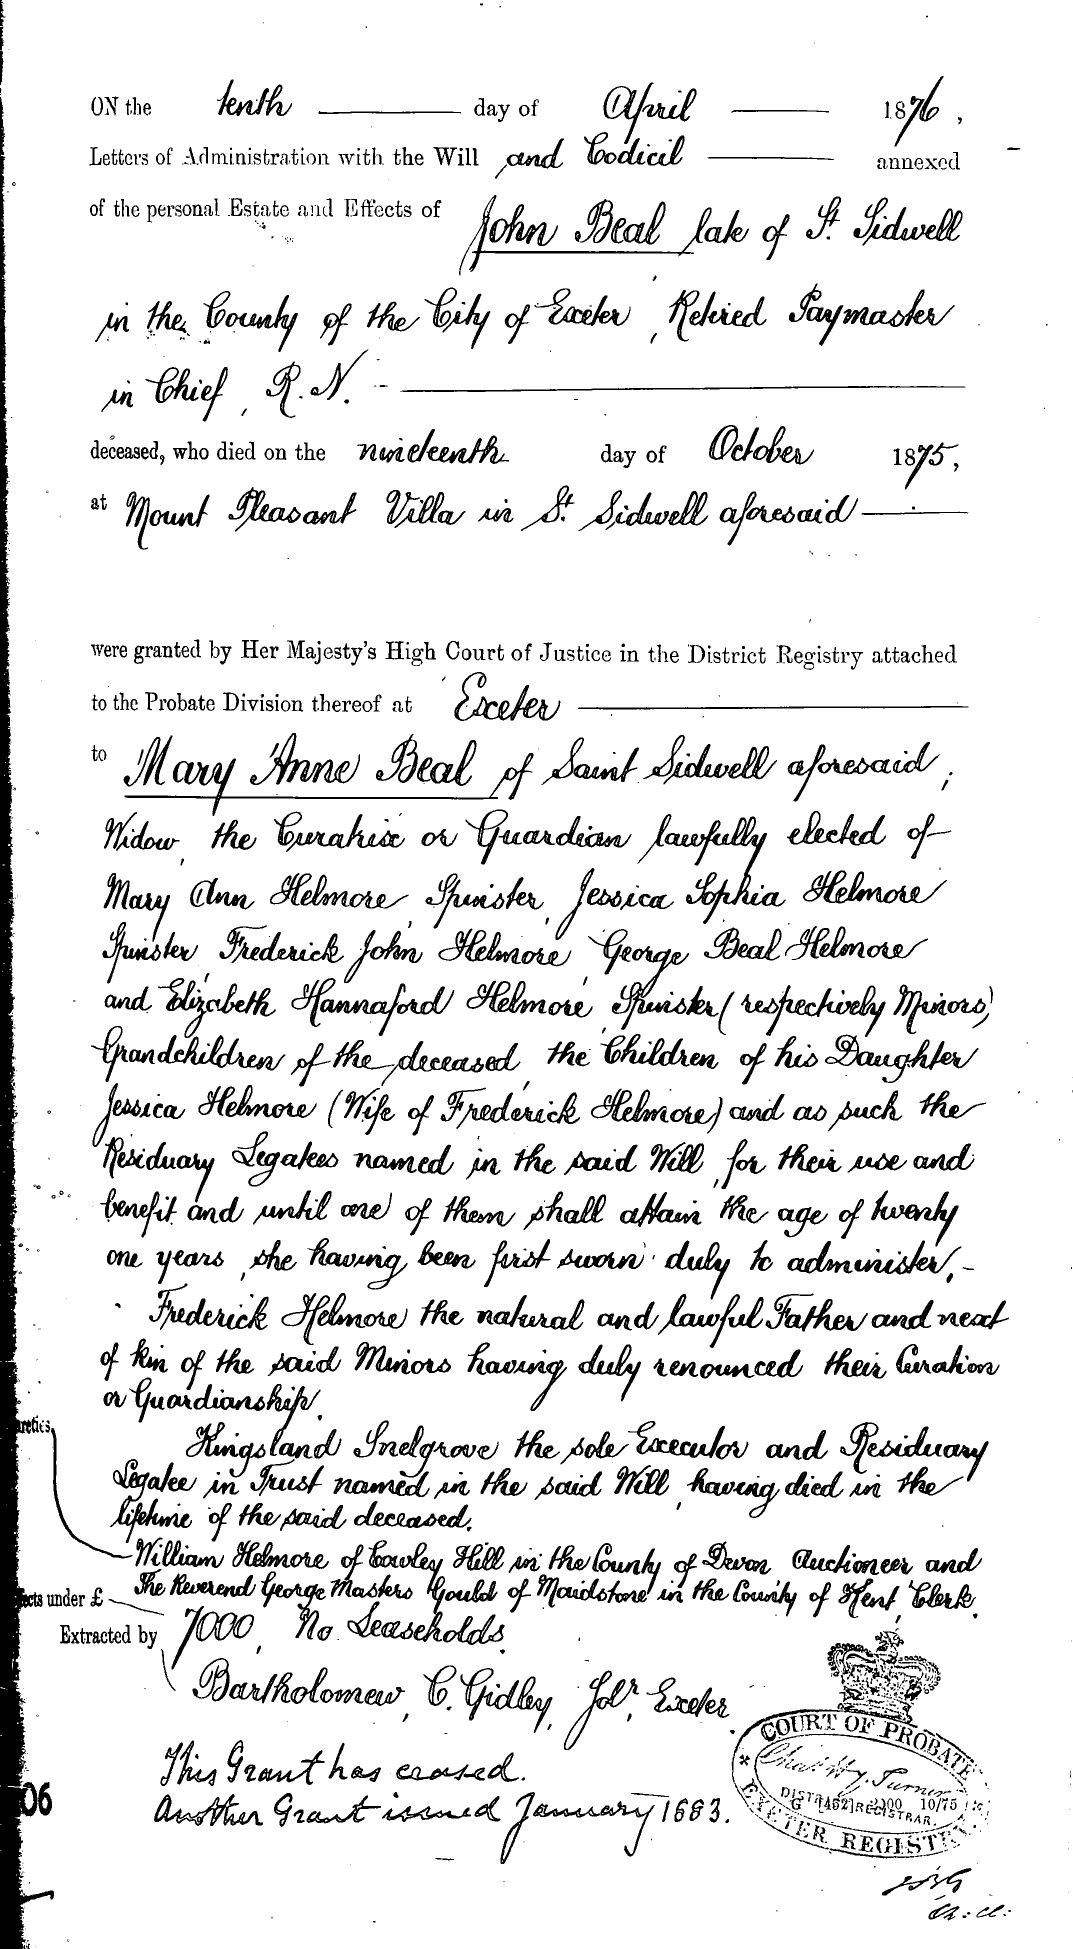 ON the tenth day of April 1876,
Letters of Administration with the Will and Codicil annexed
of the personal Estate and Effects of John Beal late of St. Sidwell
in the County of the City of Exeter, Retired Paymaster
in Chief, R.N. -
deceased, who died on the nineteenth day of October 1875,
at Mount Pleasant Villa in St. Sidwell aforesaid
were granted by Her Majesty's High Court of Justice in the District Registry attached
to the Probate Division thereof at Exeter
to Mary Anne Beal of Saint Sidwell aforesaid,
Widow, the Curatrix or Guardian lawfully elected of
Mary Ann Helmore Spinster, Jessica Sophia Helmore
Spinster, Frederick John Helmore, George Beal Helmore
and Elizabeth Hannaford Helmore, Spinster (respectively Minors)
Grandchildren of the deceased, the Children of his Daughter
Jessica Helmore (Wife of Frederick Helmore) and as such the
Residuary Legatees named in the said Will, for their use and
benefit and until one of them shall attain the age of twenty
one years, she having been first sworn duly to administer. -
Frederick Helmore the natural and lawful Father and next
of kin of the said Minors having duly renounced their Curation
or Guardianship.
Kingsland Snelgrove the sole Executor and Residuary
Legatee in Trust named in the said Will, having died in the
lifetime of the said deceased.
William Helmore of Cowley Hill in the County of Devon Auctioneer and
The Reverend George Masters Gould of Maidstone in the County of Kent, Clerk.
under £ 7000, No Leaseholds.
Extracted by
Bartholomew, C. Gidley, Solr, Exeter
This Grant has ceased.
Another Grant issued January 1883.
06
COURT OF PROBATE
Chas Hy. Turner
DISTRICT REGISTRAR.
G [452] 2000 10/75
EXETER REGISTRY